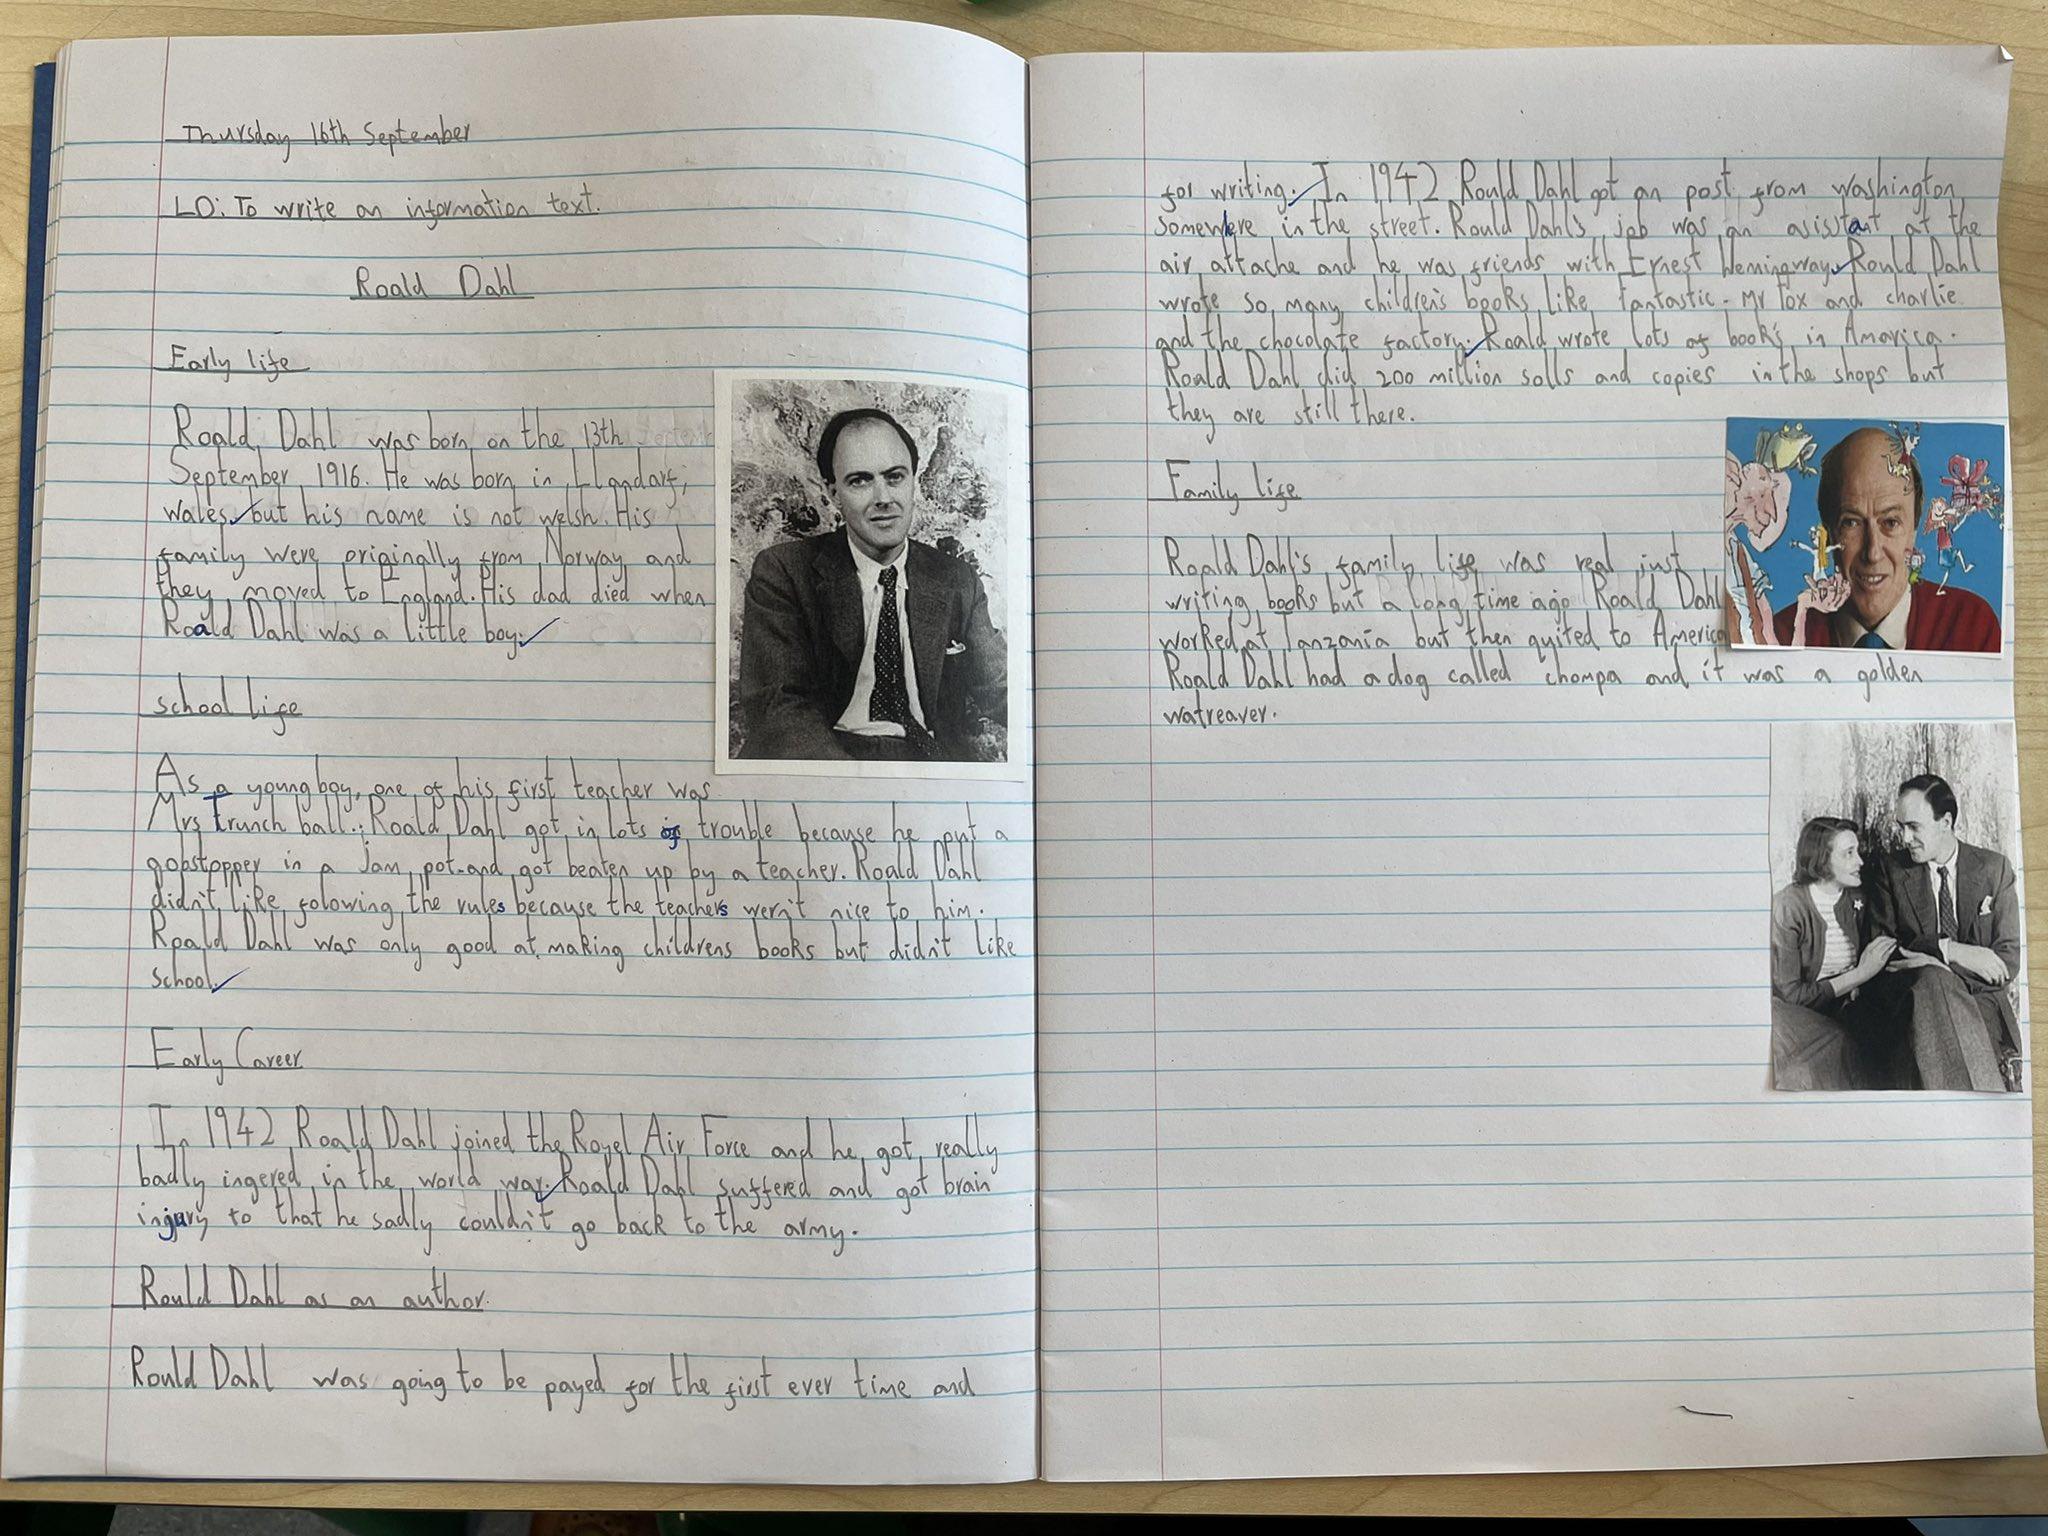 Thursday 16th September
LO: To write an information text.
Roald Dahl
Early life
Roald Dahl was born on the 13th
September 1916. He was born in Llandarf,
Wales, but his name is not welsh. His
family were originally from Norway and
they moved to England. His dad died when
Roald Dahl was a little boy.
School Life
As a young boy, one of his first teacher was
Mrs Trunch ball. Roald Dahl got in lots of trouble because he put a
gobstopper in a Jam pot and got beaten up by a teacher. Roald Dahl
didn't like folowing the rules because the teachers wern't nice to him.
Roald Dahl was only good at making childrens books but didn't like
school.
Early Career
In 1942 Roald Dahl joined the Royel Air Force and he got really
badly ingered in the world war. Roald Dahl suffered and got brain
injury to that he sadly couldn't go back to the army.
Rould Dahl as an author.
Rould Dahl was going to be payed for the first ever time and
for writing. In 1942 Rould Dahl got an post from washington,
somewhere in the street. Rould Dahl's job was an asisstant at the
air attache and he was friends with Ernest Hemingway. Rould Dahl
wrote so many children's books like fantastic Mr fox and charlie
and the chocolate factory. Roald wrote lots of book's in Amarica.
Roald Dahl did 200 million solls and copies in the shops but
they are still there.
Family life
Roald Dahl's family life was real just
writing books but a long time ago Roald Dahl
worked at Tanzania but then quited to America
Roald Dahl had a dog called chompa and it was a golden
watreaver.